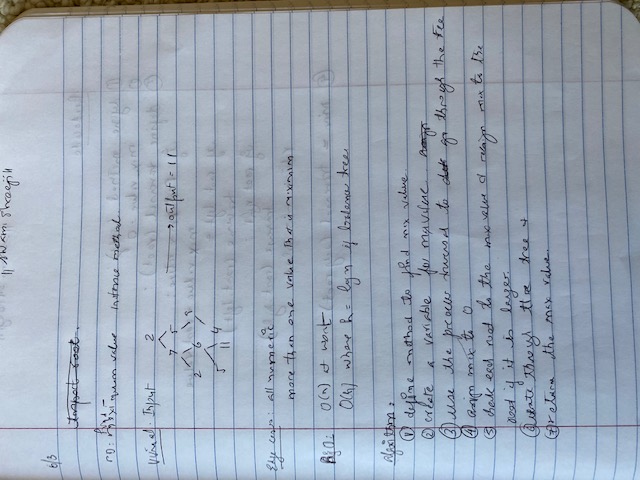 || Swami Shreeji ||
6/3
Import root.
maximum value instance method.
Visual: Input
2
7 5 → output = 11
2 6 9
5 11 4
Edge cases: all numeric
more than one value that is maximum
O(n) at worst
O(h) where h = lgn if balance tree
Algorithm:
① define method to find max value
② create a variable for maxvalue
③ use the preorder traversal to go through the tree
④ assign max to 0
⑤ check each root to the max value & reassign max to the
root if it is larger.
⑥ iterate through the tree &
⑦ return the max value.